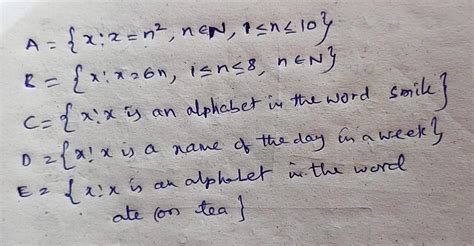 A = {x:x=n², n∈N, 1≤n≤10}
B = {x:x=6n, 1≤n≤8, n∈N}
C= {x:x is an alphabet in the word smile}
D = {x:x is a name of the day in a week}
E = {x:x is an alphabet in the word
ate (or) tea}